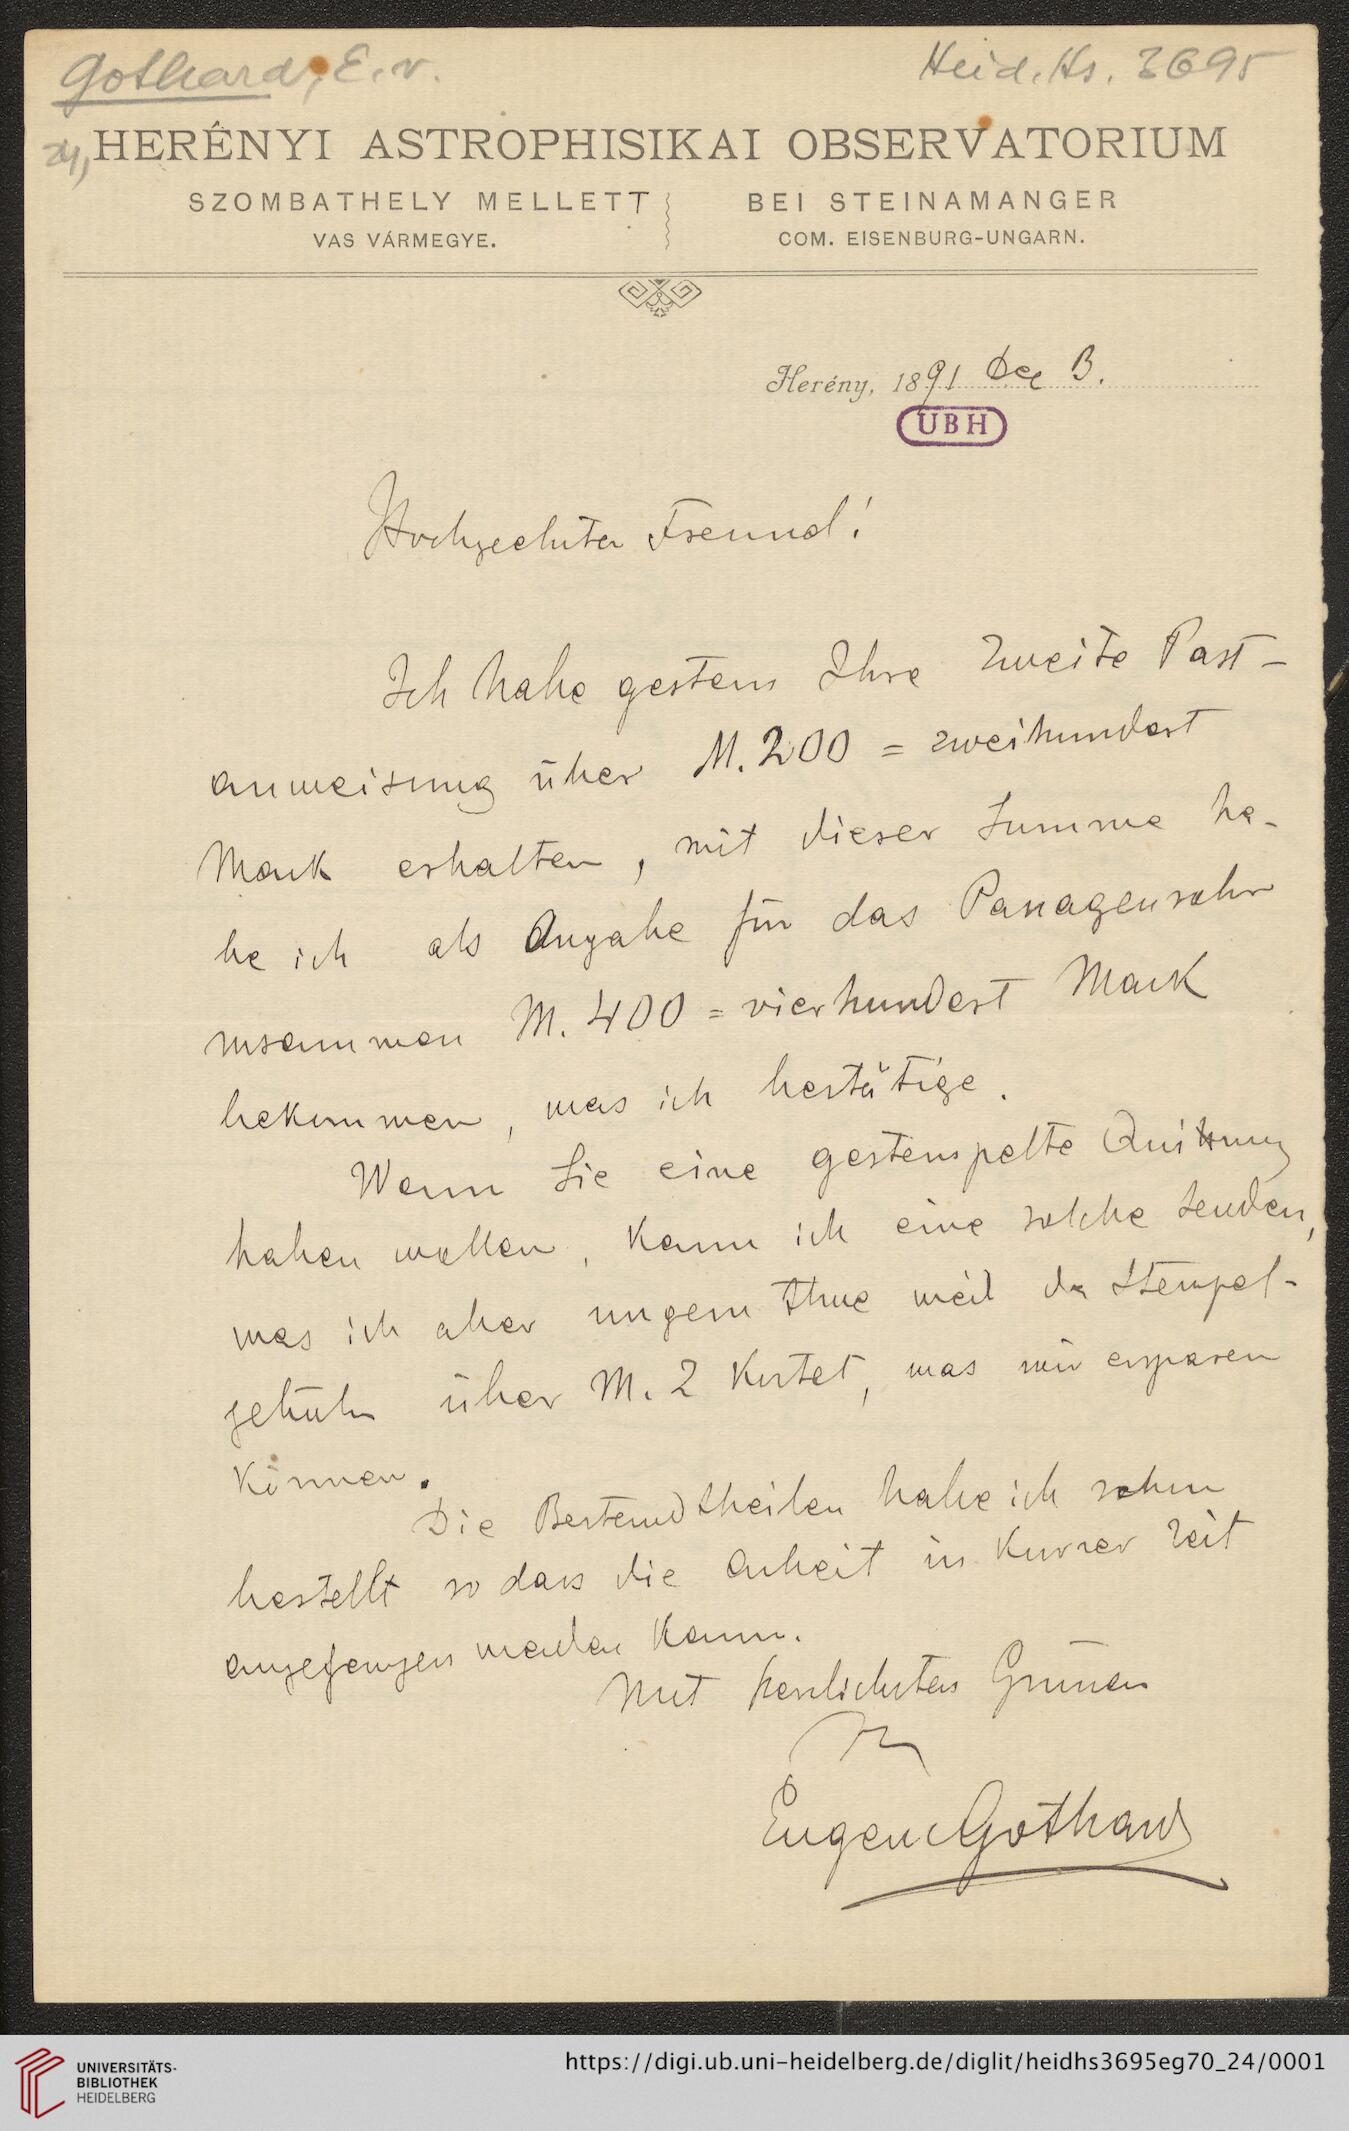 Gothard, E. v.
Heid. Hs. 3695
24,
HERÉNYI ASTROPHISIKAI OBSERVATORIUM
SZOMBATHELY MELLETT
VAS VÁRMEGYE.
BEI STEINAMANGER
COM. EISENBURG-UNGARN.
Herény, 1891 Dec 13.
UBH
Hochgeehrter Freund!
Ich habe gestern Ihre zweite Post-
anweisung über M. 200 = zweihundert
Mark erhalten, mit dieser Summe ha-
be ich als Angabe für das Passagenrohr
zusammen M. 400 = vierhundert Mark
bekommen, was ich bestätige.
Wenn Sie eine gestempelte Quittung
haben wollen, kann ich eine solche senden,
was ich aber ungern thue weil die Stempel-
gebühr über M. 2 kostet, was wir ersparen
können.
Die Bestandtheilen habe ich schon
bestellt so dass die Arbeit in kurzer Zeit
angefangen werden kann.
Mit herzlichsten Grüssen
Ihr
Eugen Gothard
UNIVERSITÄTS-
BIBLIOTHEK
HEIDELBERG
https://digi.ub.uni-heidelberg.de/diglit/heidhs3695eg70_24/0001